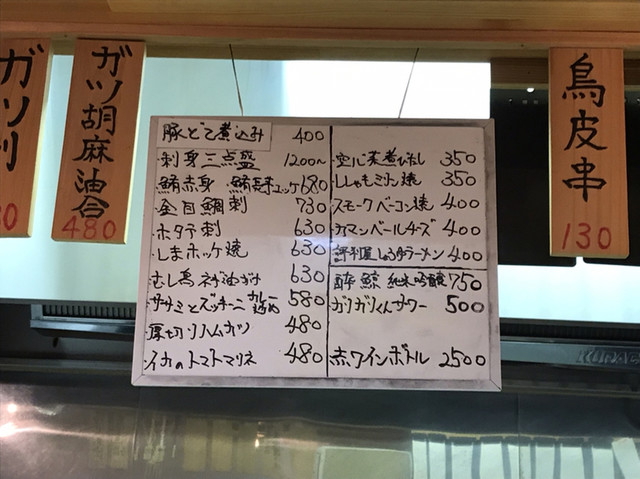 ガツ刺
ガツ胡麻油合
480
豚どて煮込み 400
刺身三点盛 1200~
鮪赤身 ・鮪ユッケ 680
金目鯛刺 730
ホタテ刺 630
しまホッケ焼 630
むし鳥ネギ油がけ 630
ササミとズッキーニ カレー炒め 580
厚切りハムカツ 480
イカのトマトマリネ 480
空心菜煮びたし 350
ししゃもミリン焼 350
スモークベーコン焼 400
カマンベールチーズ 400
評判屋しょうゆラーメン 400
酔鯨 純米吟醸 750
ガリガリくんサワー 500
赤ワインボトル 2500
鳥皮串
130